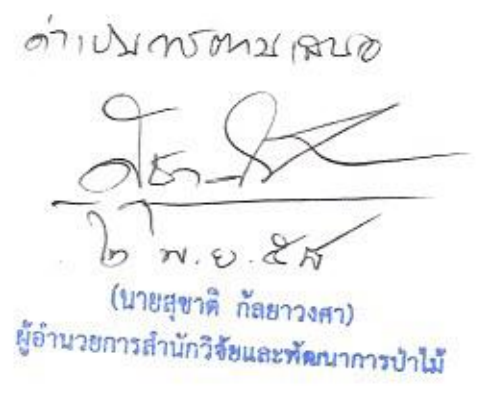 ดำเนินการตามเสนอ
๒ พ.ย. ๕๘
(นายสุชาติ กัลยาวงศา)
ผู้อำนวยการสำนักวิจัยและพัฒนาการป่าไม้